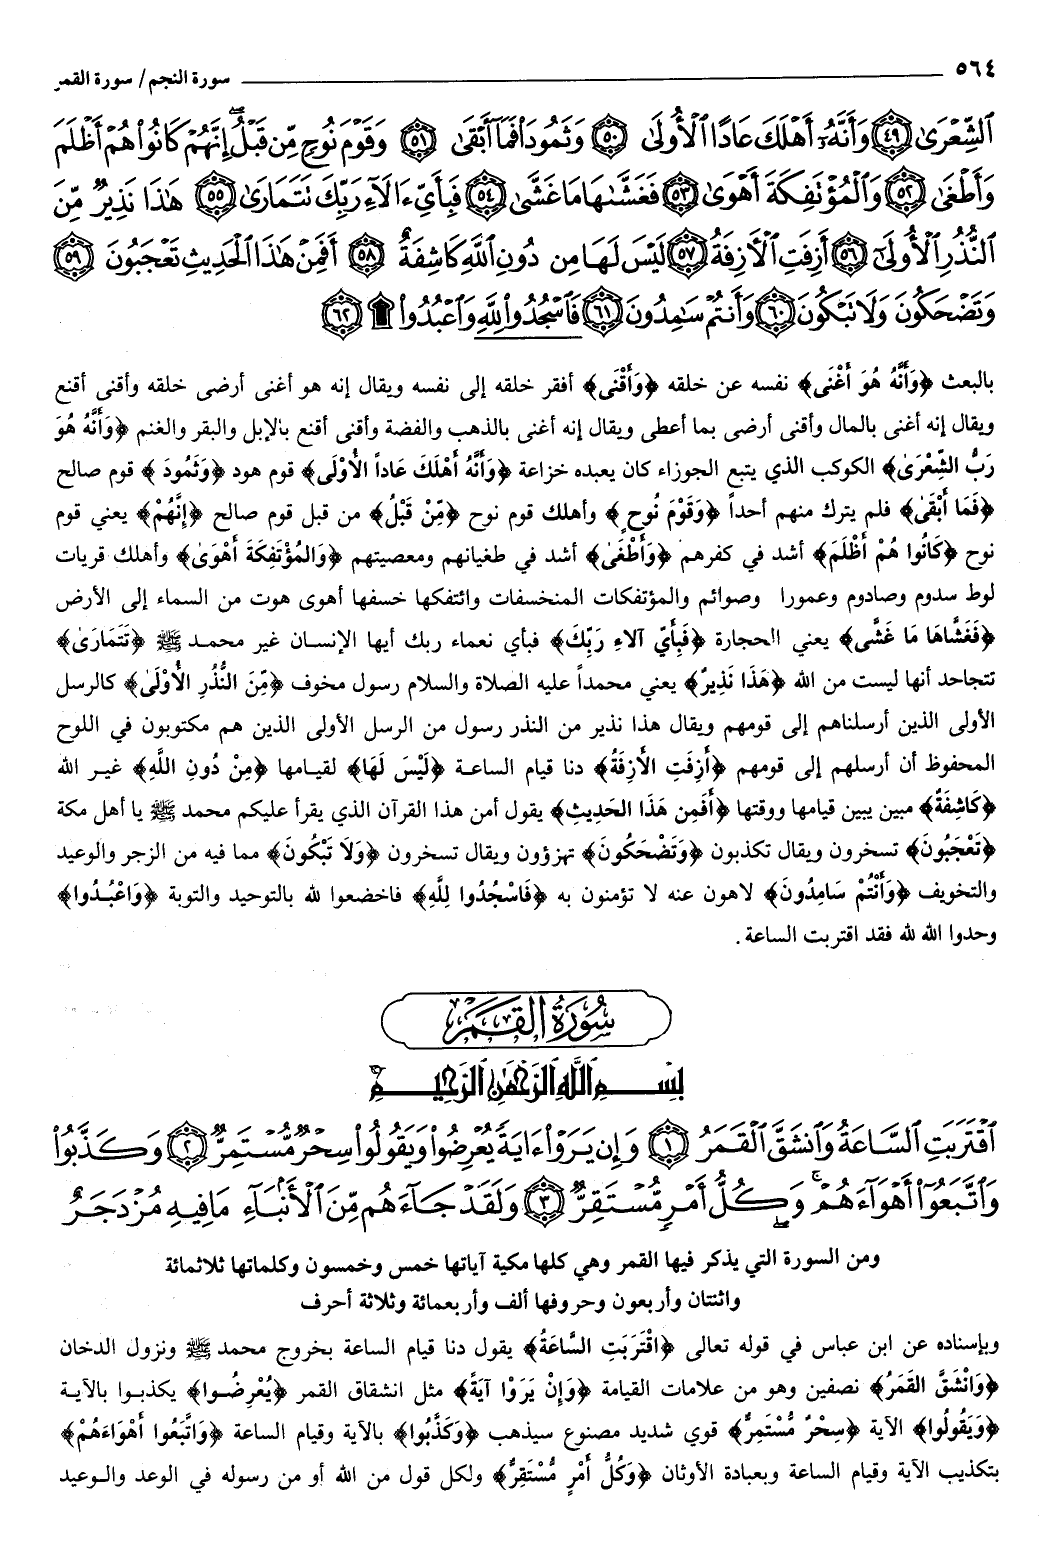 ٥٦٤ سورة النجم/ سورة القمر
ٱلشِّعۡرَىٰ ٤٩ وَأَنَّهُۥٓ أَهۡلَكَ عَادًا ٱلۡأُولَىٰ ٥٠ وَثَمُودَاْ فَمَآ أَبۡقَىٰ ٥١ وَقَوۡمَ نُوحٖ مِّن قَبۡلُۖ إِنَّهُمۡ كَانُواْ هُمۡ أَظۡلَمَ
وَأَطۡغَىٰ ٥٢ وَٱلۡمُؤۡتَفِكَةَ أَهۡوَىٰ ٥٣ فَغَشَّىٰهَا مَا غَشَّىٰ ٥٤ فَبِأَيِّ ءَالَآءِ رَبِّكَ تَتَمَارَىٰ ٥٥ هَٰذَا نَذِيرٞ مِّنَ
ٱلنُّذُرِ ٱلۡأُولَىٰٓ ٥٦ أَزِفَتِ ٱلۡأٓزِفَةُ ٥٧ لَيۡسَ لَهَا مِن دُونِ ٱللَّهِ كَاشِفَةٌ ٥٨ أَفَمِنۡ هَٰذَا ٱلۡحَدِيثِ تَعۡجَبُونَ ٥٩
وَتَضۡحَكُونَ وَلَا تَبۡكُونَ ٦٠ وَأَنتُمۡ سَٰمِدُونَ ٦١ فَٱسۡجُدُواْ لِلَّهِ وَٱعۡبُدُواْ ۩ ٦٢
بالبعث ﴿وَأَنَّهُ هُوَ أَغْنَى﴾ نفسه عن خلقه ﴿وَأَقْنَى﴾ أفقر خلقه إلى نفسه ويقال إنه هو أغنى أرضى خلقه وأقنى أقنع
ويقال إنه أغنى بالمال وأقنى أرضى بما أعطى ويقال إنه أغنى بالذهب والفضة وأقنى أقنع بالإبل والبقر والغنم ﴿وَأَنَّهُ هُوَ
رَبُّ الشِّعْرَىٰ﴾ الكوكب الذي يتبع الجوزاء كان يعبده خزاعة ﴿وَأَنَّهُ أَهْلَكَ عَاداً الأُوْلَى﴾ قوم هود ﴿وَثَمُودَ﴾ قوم صالح
﴿فَمَا أَبْقَىٰ﴾ فلم يترك منهم أحداً ﴿وَقَوْمَ نُوحٍ﴾ وأهلك قوم نوح ﴿مِّنْ قَبْلُ﴾ من قبل قوم صالح ﴿إِنَّهُمْ﴾ يعني قوم
نوح ﴿كَانُوا هُمْ أَظْلَمَ﴾ أشد في كفرهم ﴿وَأَطْغَىٰ﴾ أشد في طغيانهم ومعصيتهم ﴿وَالمُؤْتَفِكَةَ أَهْوَىٰ﴾ وأهلك قريات
لوط سدوم وصادوم وعمورا وصوائم والمؤتفكات المنخسفات وائتفكها خسفها أهوى هوت من السماء إلى الأرض
﴿فَغَشَّاهَا مَا غَشَّى﴾ يعني الحجارة ﴿فَبِأَيِّ آلاءِ رَبِّكَ﴾ فبأي نعماء ربك أيها الإنسان غير محمد ﷺ ﴿تَتَمَارَىٰ﴾
تتجاحد أنها ليست من الله ﴿هَذَا نَذِيرٌ﴾ يعني محمداً عليه الصلاة والسلام رسول مخوف ﴿مِّنَ النُّذُرِ الأُوْلَىٰ﴾ كالرسل
الأولى الذين أرسلناهم إلى قومهم ويقال هذا نذير من النذر رسول من الرسل الأولى الذين هم مكتوبون في اللوح
المحفوظ أن أرسلهم إلى قومهم ﴿أَزِفَتِ الآزِفَةُ﴾ دنا قيام الساعة ﴿لَيْسَ لَهَا﴾ لقيامها ﴿مِنْ دُونِ اللَّهِ﴾ غير الله
﴿كَاشِفَةٌ﴾ مبين يبين قيامها ووقتها ﴿أَفَمِن هَذَا الحَدِيثِ﴾ يقول أمن هذا القرآن الذي يقرأ عليكم محمد ﷺ يا أهل مكة
﴿تَعْجَبُونَ﴾ تسخرون ويقال تكذبون ﴿وَتَضْحَكُونَ﴾ تهزؤون ويقال تسخرون ﴿وَلَا تَبْكُونَ﴾ مما فيه من الزجر والوعيد
والتخويف ﴿وَأَنْتُمْ سَامِدُونَ﴾ لاهون عنه لا تؤمنون به ﴿فَاسْجُدُوا لِلَّهِ﴾ فاخضعوا لله بالتوحيد والتوبة ﴿وَاعْبُدُوا﴾
وحدوا الله لله فقد اقتربت الساعة.
سُورَةُ القَمَر
بِسۡمِ ٱللَّهِ ٱلرَّحۡمَٰنِ ٱلرَّحِيمِ
ٱقۡتَرَبَتِ ٱلسَّاعَةُ وَٱنشَقَّ ٱلۡقَمَرُ ١ وَإِن يَرَوۡاْ ءَايَةٗ يُعۡرِضُواْ وَيَقُولُواْ سِحۡرٞ مُّسۡتَمِرّٞ ٢ وَكَذَّبُواْ
وَٱتَّبَعُوٓاْ أَهۡوَآءَهُمۡۚ وَكُلُّ أَمۡرٖ مُّسۡتَقِرّٞ ٣ وَلَقَدۡ جَآءَهُم مِّنَ ٱلۡأَنۢبَآءِ مَا فِيهِ مُزۡدَجَرٌ
ومن السورة التي يذكر فيها القمر وهي كلها مكية آياتها خمس وخمسون وكلماتها ثلاثمائة
واثنتان وأربعون وحروفها ألف وأربعمائة وثلاثة أحرف
وبإسناده عن ابن عباس في قوله تعالى ﴿اقْتَرَبَتِ السَّاعَةُ﴾ يقول دنا قيام الساعة بخروج محمد ﷺ ونزول الدخان
﴿وَانْشَقَّ القَمَرُ﴾ نصفين وهو من علامات القيامة ﴿وَإِنْ يَرَوْا آيَةً﴾ مثل انشقاق القمر ﴿يُعْرِضُوا﴾ يكذبوا بالآية
﴿وَيَقُولُوا﴾ الآية ﴿سِحْرٌ مُّسْتَمِرٌّ﴾ قوي شديد مصنوع سيذهب ﴿وَكَذَّبُوا﴾ بالآية وقيام الساعة ﴿وَاتَّبَعُوا أَهْوَاءَهُمْ﴾
بتكذيب الآية وقيام الساعة وبعبادة الأوثان ﴿وَكُلُّ أَمْرٍ مُّسْتَقِرٌّ﴾ ولكل قول من الله أو من رسوله في الوعد والوعيد